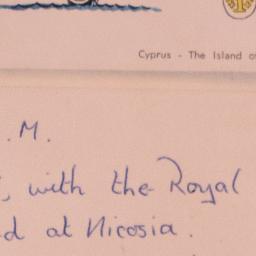 Cyprus - The Island o
.M.
, with the Royal
d at Nicosia.